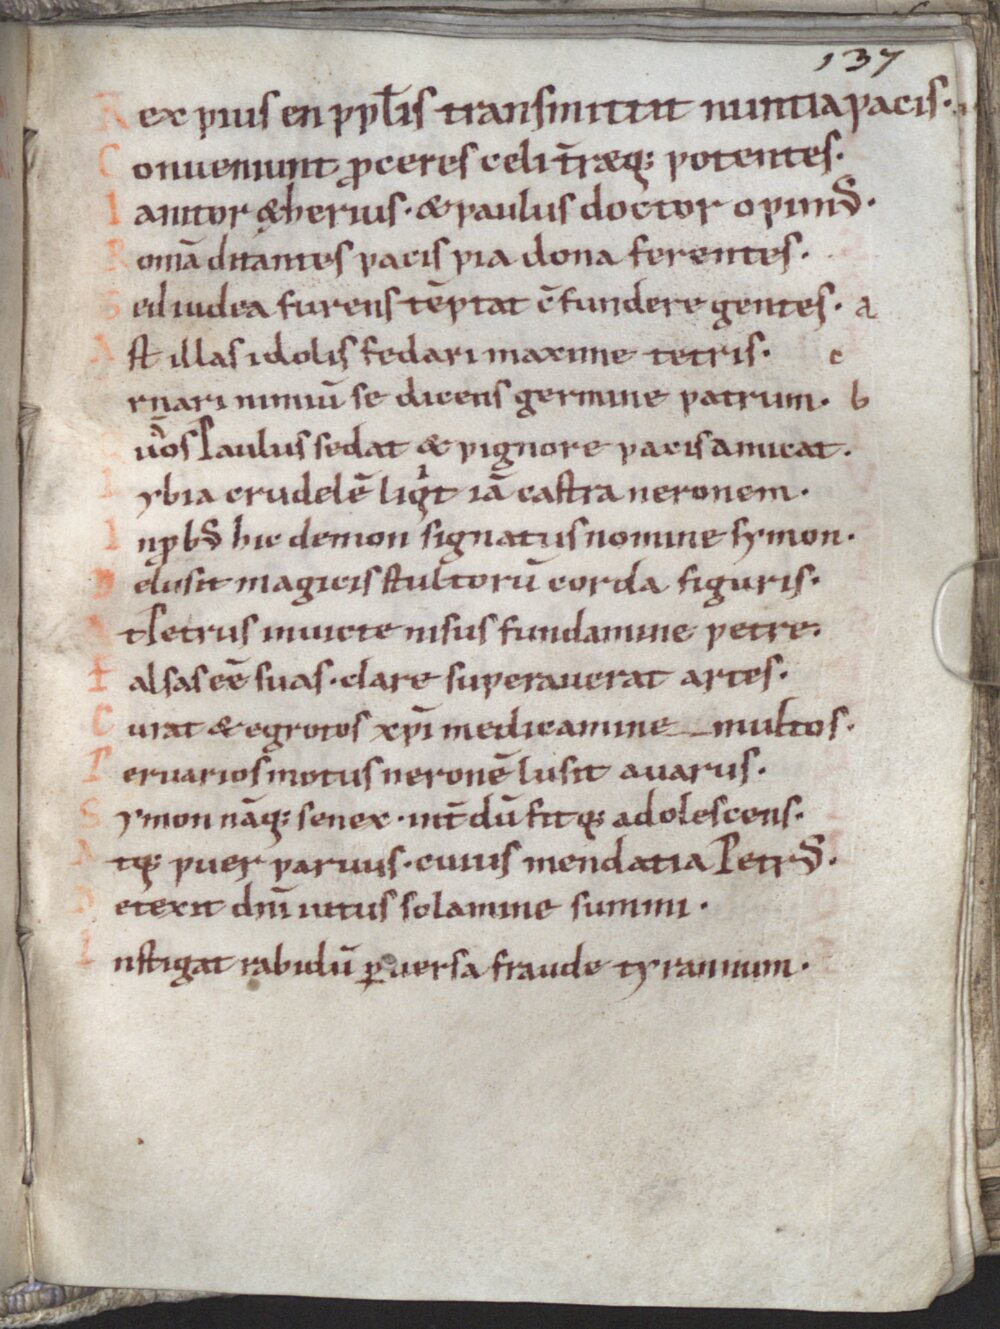 137
Rex pius en ppl̄is transmittit nuntia pacis·
Conueniunt p̄ceres celi t̄ræq; potentes·
Ianitor æthérius· & paulus doctor opimꝰ·
Romā ditantes pacis pia dona ferentes·
Sed iudea furens tēptat c̄fundere gentes· a
Ast illas idolis fedari maxime tetris· c
rnari nimiū se dicens germine patrum· b
uos Paulus sedat & pignore pacis amicat·
Lybia crudelē ligͥt iā castra neronem·
Inꝓbꝰ hic demon signatus nomine symon·
Delusit magicis stultorū corda figuris·
At Petrus inuicte nisus fundamine petre·
Falsas eē suas· clare superauerat artes·
Curat & egrotos xp̄i medicamine multos·
Per uarios motus neronē lusit auarus·
Symon nāq; senex· int̄dū fitq; adolescens·
Atq; puer paruus· cuius mendatia Petrꝰ·
Detexit dn̄i uitus solamine summi·
Instigat rabidū ꝑuersa fraude tyrannum·